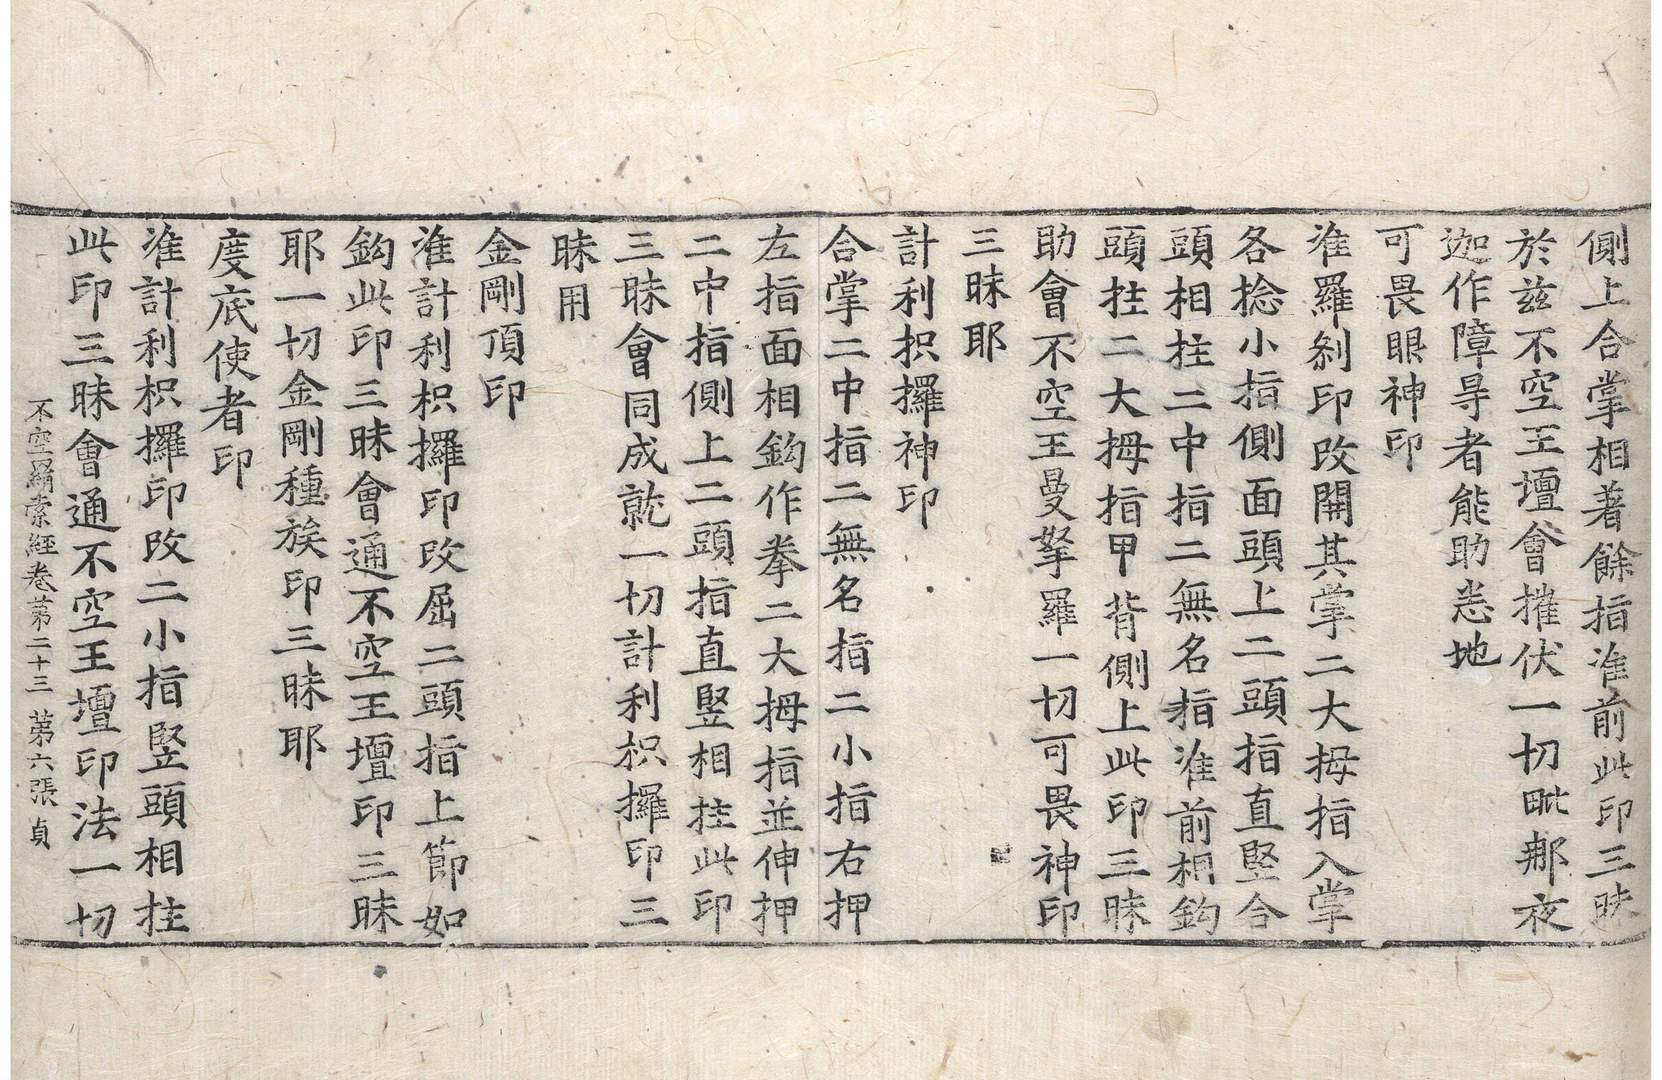 側上合掌相著餘指准前此印三昧
於兹不空王壇會摧伏一切毗那夜
迦作障㝵者能助悉地
可畏眼神印
准羅刹印改開其掌二大拇指入掌
各捻小指側面頭上二頭指直竪合
頭相拄二中指二無名指准前相鈎
頭拄二大拇指甲背側上此印三昧
助會不空王曼拏羅一切可畏神印
三昧耶
計利抧攞神印
合掌二中指二無名指二小指右押
左指面相鈎作拳二大拇指並伸押
二中指側上二頭指直竪相拄此印
三昧會同成就一切計利枳攞印三
昧用
金剛頂印
准計利枳攞印改屈二頭指上節如
鈎此印三昧會通不空王壇印三昧
耶一切金剛種族印三昧耶
度底使者印
准計利枳攞印改二小指竪頭相拄
此印三昧會通不空王壇印法一切
不空羂索經卷第二十三 第六張 貞